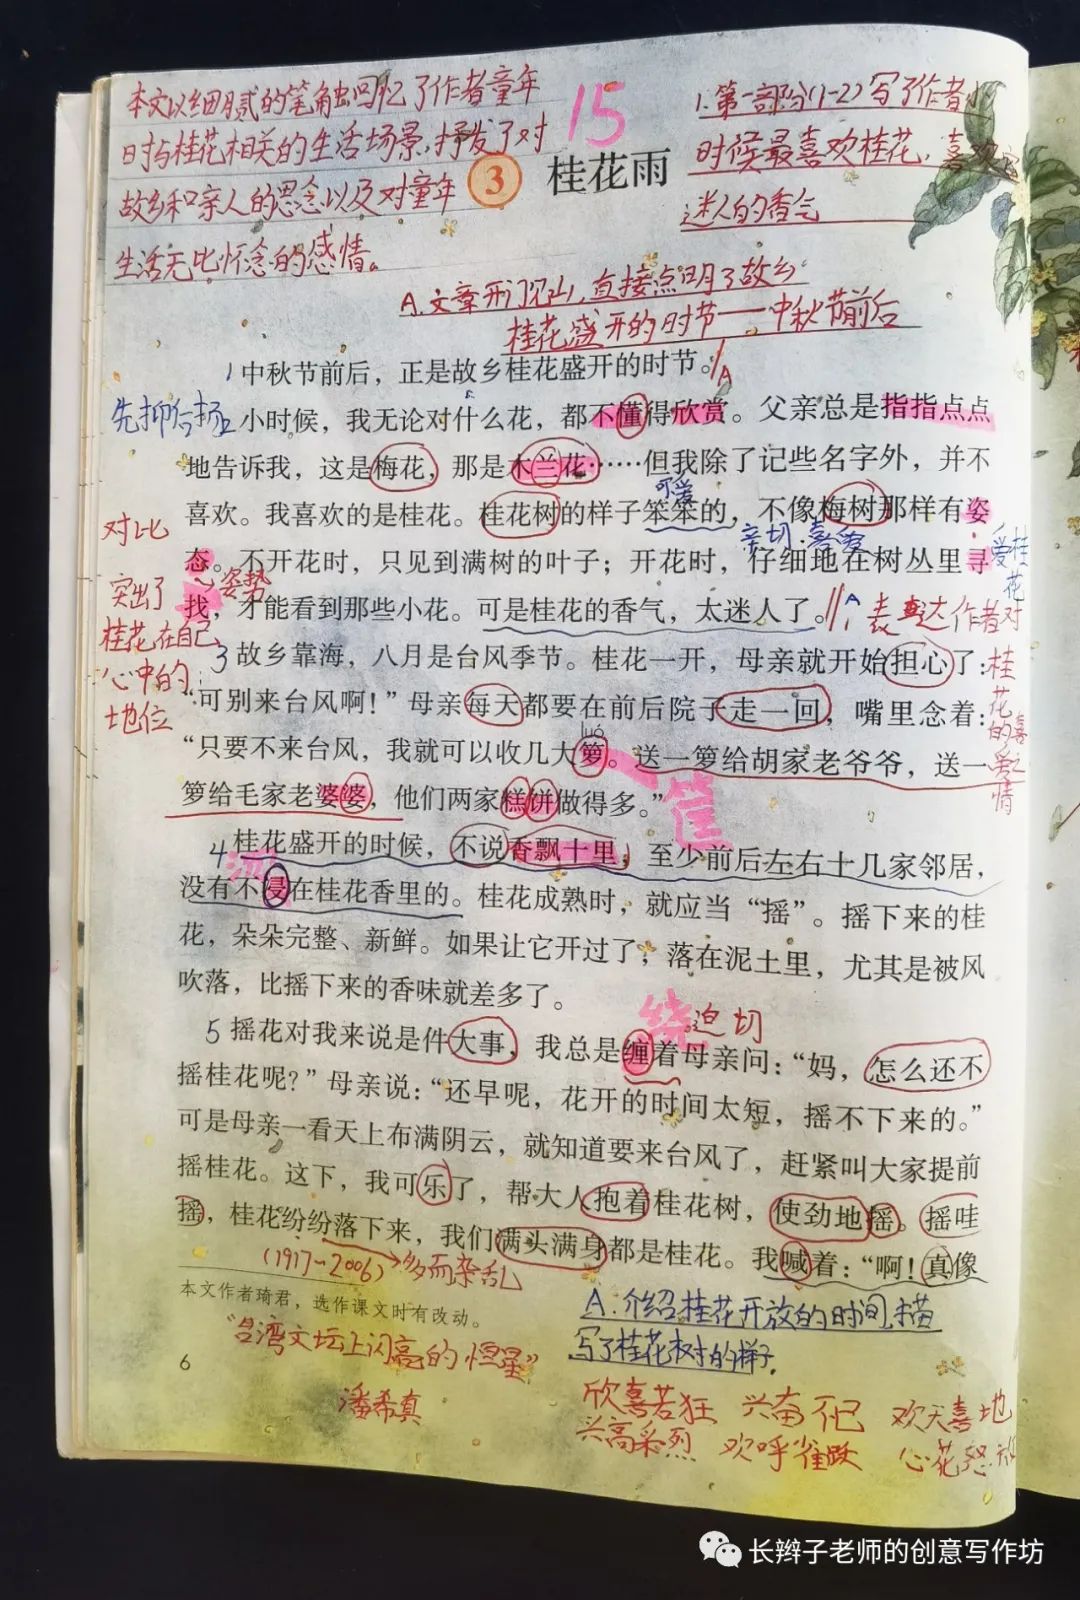 本文以细腻的笔触回忆了作者童年
时与桂花相关的生活场景,抒发了对
故乡和亲人的思念以及对童年
生活无比怀念的感情。
15
③ 桂花雨
1.第一部分(1-2)写了作者小
时候最喜欢桂花,喜欢它
迷人的香气
A.文章开门见山,直接点明了故乡
桂花盛开的时节——中秋节前后
1 中秋节前后，正是故乡桂花盛开的时节。// A
先抑后扬
2 小时候，我无论对什么花，都不懂得欣赏。父亲总是指指点点
地告诉我，这是梅花，那是木兰花……但我除了记些名字外，并不
可爱
喜欢。我喜欢的是桂花。桂花树的样子笨笨的，不像梅树那样有姿
亲切.喜爱
态。不开花时，只见到满树的叶子；开花时，仔细地在树丛里寻
→姿势
找，才能看到那些小花。可是桂花的香气，太迷人了。// A
对比
突出了
桂花在自己
心中的
地位
爱桂花
表达作者对
桂花的喜爱之情
3 故乡靠海，八月是台风季节。桂花一开，母亲就开始担心了：
“可别来台风啊！”母亲每天都要在前后院子走一回，嘴里念着：
luó
“只要不来台风，我就可以收几大箩。送一箩给胡家老爷爷，送一
筐
箩给毛家老婆婆，他们两家糕饼做得多。”
4 桂花盛开的时候，不说香飘十里，至少前后左右十几家邻居，
没有不浸在桂花香里的。桂花成熟时，就应当“摇”。摇下来的桂
花，朵朵完整、新鲜。如果让它开过了，落在泥土里，尤其是被风
吹落，比摇下来的香味就差多了。
绕
迫切
5 摇花对我来说是件大事，我总是缠着母亲问：“妈，怎么还不
摇桂花呢？”母亲说：“还早呢，花开的时间太短，摇不下来的。”
可是母亲一看天上布满阴云，就知道要来台风了，赶紧叫大家提前
摇桂花。这下，我可乐了，帮大人抱着桂花树，使劲地摇。摇哇
摇，桂花纷纷落下来，我们满头满身都是桂花。我喊着：“啊！真像
(1917~2006)
→多而杂乱
本文作者琦君，选作课文时有改动。
“台湾文坛上闪亮的恒星”
潘希真
6
A.介绍桂花开放的时间,描
写了桂花树的样子
欣喜若狂 兴奋不已 欢天喜地
兴高采烈 欢呼雀跃 心花怒放
长辫子老师的创意写作坊